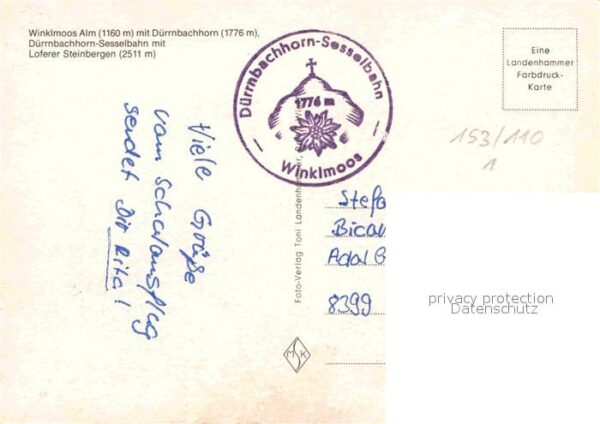 Winklmoos Alm (1160 m) mit Dürrnbachhorn (1776 m),
Dürrnbachhorn-Sesselbahn mit
Loferer Steinbergen (2511 m)
Dürrnbachhorn-Sesselbahn
1776 m
Winklmoos
Eine
Landenhammer
Farbdruck-
Karte
153/110
1
Viele Grüße
vom Schulausflug
sendet Dir Rita!
Foto-Verlag Toni Landenhammer,
Stefa
Adal
8399
MSK
privacy protection
Datenschutz